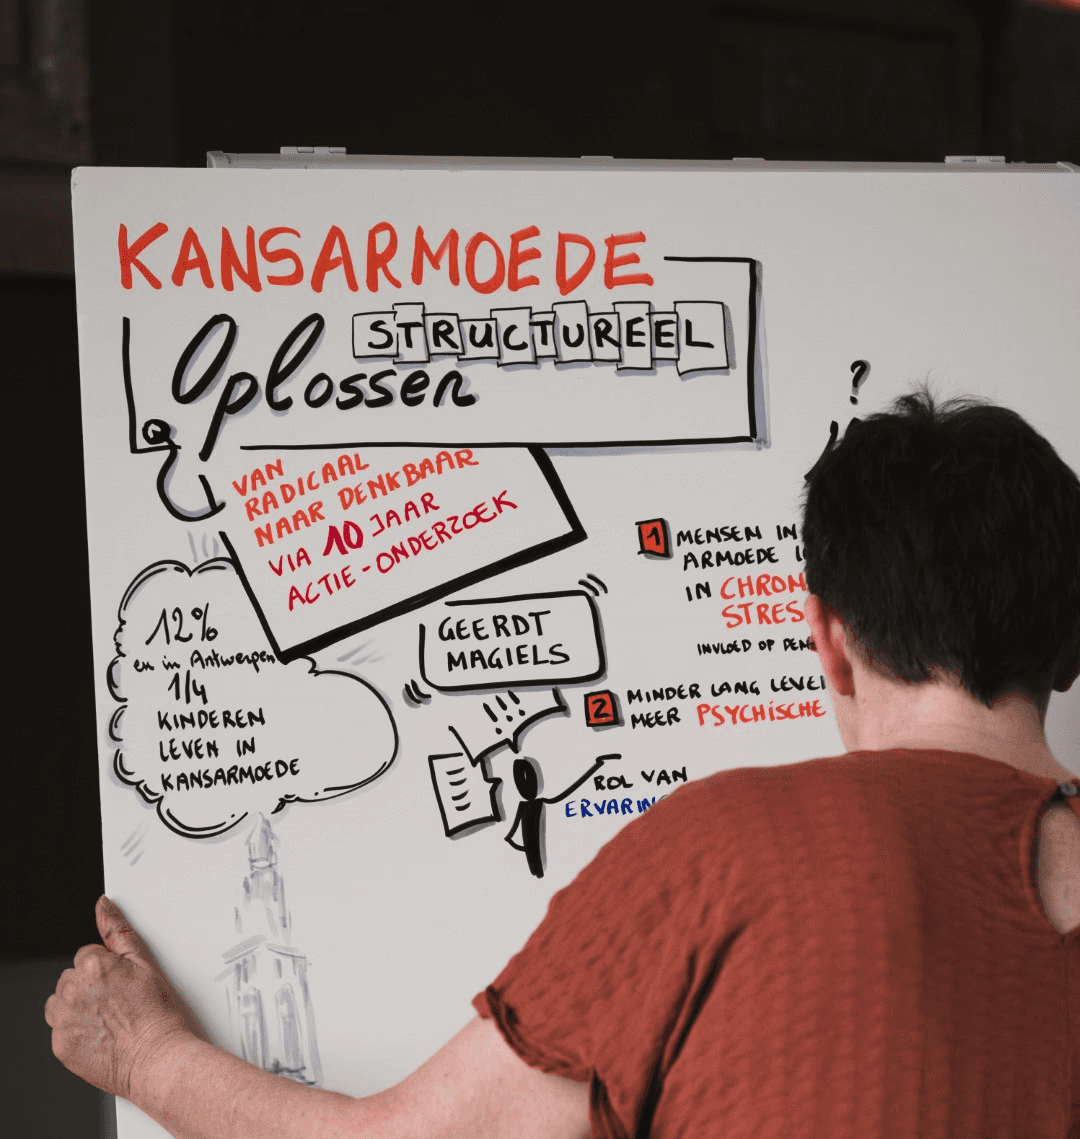 KANSARMOEDE
STRUCTUREEL
Oplossen
VAN
RADICAAL
NAAR DENKBAAR
VIA 10 JAAR
ACTIE-ONDERZOEK
12%
en in Antwerpen
1/4
KINDEREN
LEVEN IN
KANSARMOEDE
GEERDT
MAGIELS
!!!
?
1 MENSEN IN
ARMOEDE
IN CHRON
STRES
INVLOED OP
2 MINDER LANG LEVE
MEER PSYCHISCHE
ROL VAN
ERVARIN